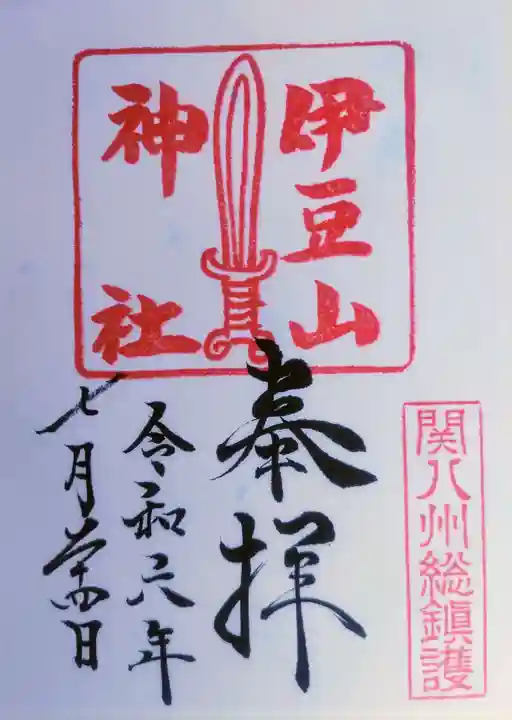 伊豆山
神社
関八州総鎮護
奉拝
令和六年
七月廿四日